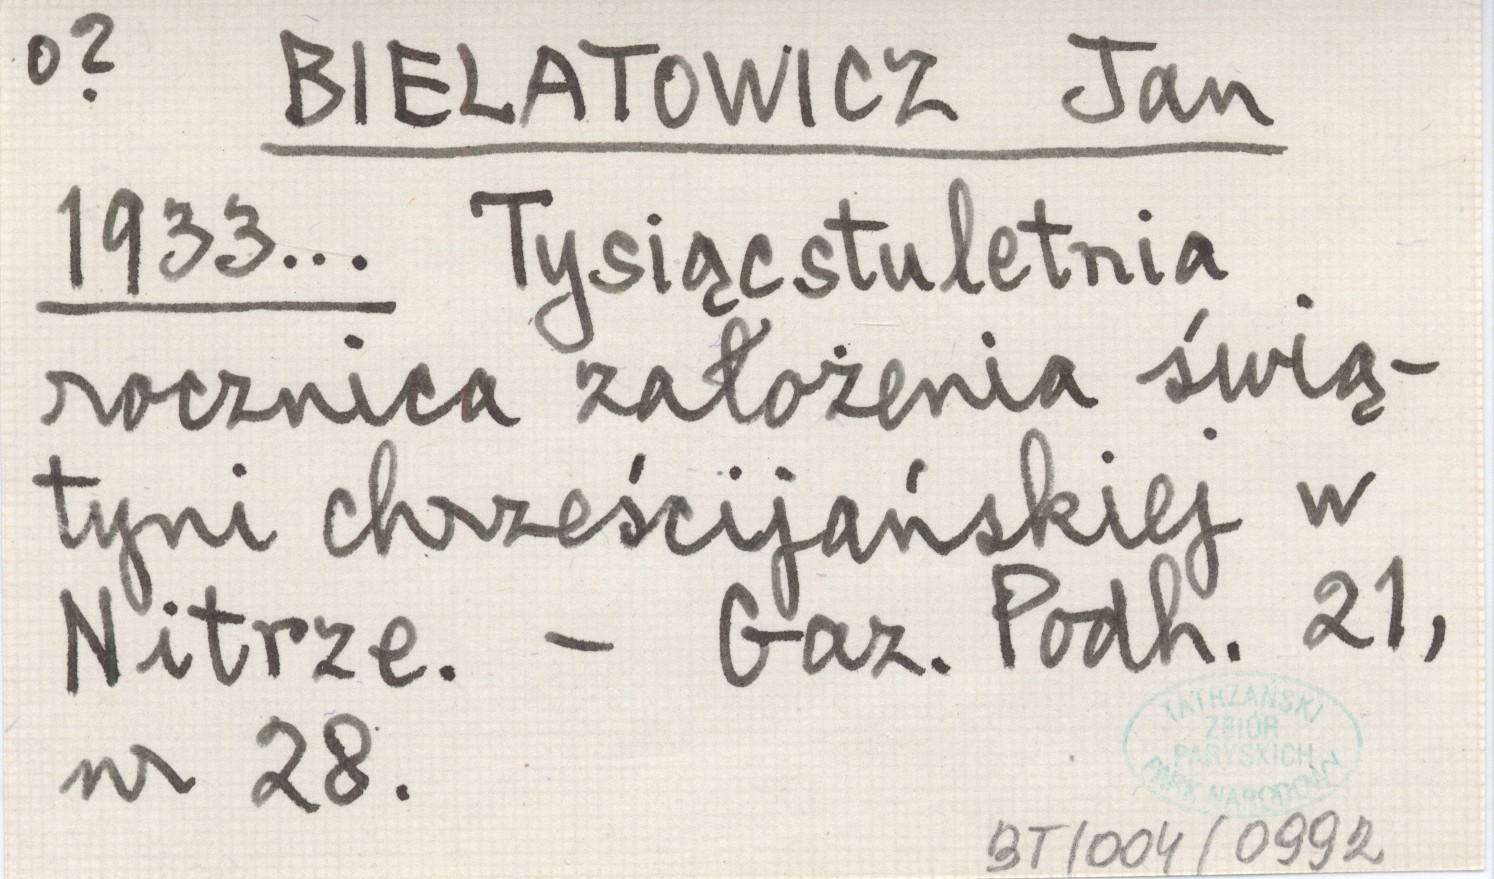 o?
BIELATOWICZ Jan
1933... Tysiącstuletnia
rocznica założenia świą-
tyni chrześcijańskiej w
Nitrze. - Gaz. Podh. 21,
nr 28.
TATRZAŃSKI
ZBIÓR
PARYSKICH
PARK NARODOWY
BT/004/0992